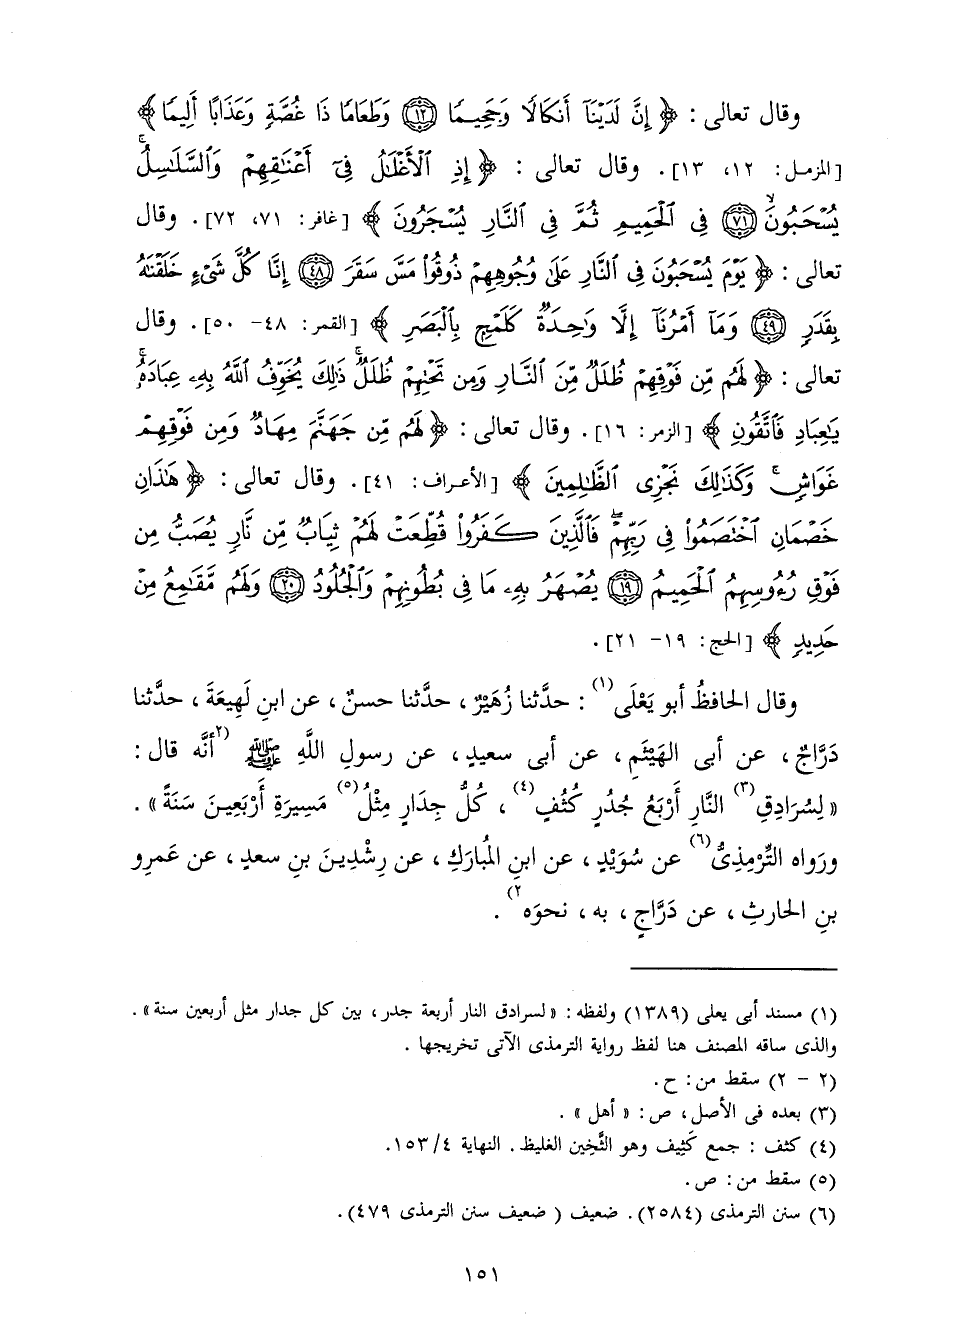 وقال تعالى : ﴿ إِنَّ لَدَيْنَآ أَنكَالًا وَجَحِيمًا ١٢ وَطَعَامًا ذَا غُصَّةٍ وَعَذَابًا أَلِيمًا ﴾
[المزمل: ١٢، ١٣]. وقال تعالى : ﴿ إِذِ ٱلْأَغْلَٰلُ فِىٓ أَعْنَٰقِهِمْ وَٱلسَّلَٰسِلُ
يُسْحَبُونَ ٧١ فِى ٱلْحَمِيمِ ثُمَّ فِى ٱلنَّارِ يُسْجَرُونَ ﴾ [غافر: ٧١، ٧٢]. وقال
تعالى : ﴿ يَوْمَ يُسْحَبُونَ فِى ٱلنَّارِ عَلَىٰ وُجُوهِهِمْ ذُوقُوا۟ مَسَّ سَقَرَ ٤٨ إِنَّا كُلَّ شَىْءٍ خَلَقْنَٰهُ
بِقَدَرٍ ٤٩ وَمَآ أَمْرُنَآ إِلَّا وَٰحِدَةٌ كَلَمْحٍۭ بِٱلْبَصَرِ ﴾ [القمر: ٤٨- ٥٠]. وقال
تعالى : ﴿ لَهُم مِّن فَوْقِهِمْ ظُلَلٌ مِّنَ ٱلنَّارِ وَمِن تَحْتِهِمْ ظُلَلٌ ۚ ذَٰلِكَ يُخَوِّفُ ٱللَّهُ بِهِۦ عِبَادَهُۥ ۚ
يَٰعِبَادِ فَٱتَّقُونِ ﴾ [الزمر: ١٦]. وقال تعالى : ﴿ لَهُم مِّن جَهَنَّمَ مِهَادٌ وَمِن فَوْقِهِمْ
غَوَاشٍ ۚ وَكَذَٰلِكَ نَجْزِى ٱلظَّٰلِمِينَ ﴾ [الأعراف: ٤١]. وقال تعالى : ﴿ هَٰذَانِ
خَصْمَانِ ٱخْتَصَمُوا۟ فِى رَبِّهِمْ ۖ فَٱلَّذِينَ كَفَرُوا۟ قُطِّعَتْ لَهُمْ ثِيَابٌ مِّن نَّارٍ يُصَبُّ مِن
فَوْقِ رُءُوسِهِمُ ٱلْحَمِيمُ ١٩ يُصْهَرُ بِهِۦ مَا فِى بُطُونِهِمْ وَٱلْجُلُودُ ٢٠ وَلَهُم مَّقَٰمِعُ مِنْ
حَدِيدٍ ﴾ [الحج: ١٩- ٢١].
وقال الحافظُ أبو يَعْلَى(١) : حدَّثنا زُهَيْرٌ، حدَّثنا حسنٌ، عن ابنِ لَهِيعَةَ، حدَّثنا
دَرَّاجٌ، عن أبى الهَيْثَمِ، عن أبى سعيدٍ، عن رسولِ اللَّهِ ﷺ (٢أنَّه قال :
« لِسُرَادِقِ(٣) النَّارِ أَرْبَعُ جُدُرٍ كُثُفٍ(٤)، كُلُّ جِدَارٍ مِثْلُ(٥) مَسِيرَةِ أَرْبَعِينَ سَنَةً ».
ورَواه التِّرْمِذِىُّ(٦) عن سُوَيْدٍ، عن ابنِ المُبارَكِ، عن رِشْدِينَ بنِ سعدٍ، عن عَمرِو
بنِ الحارثِ، عن دَرَّاجٍ، به، نحوَه٢).
(١) مسند أبى يعلى (١٣٨٩) ولفظه: « لسرادق النار أربعة جدر، بين كل جدار مثل أربعين سنة ».
والذى ساقه المصنف هنا لفظ رواية الترمذى الآتى تخريجها .
(٢ - ٢) سقط من: ح.
(٣) بعده فى الأصل، ص: « أهل » .
(٤) كثف : جمع كَثِيف وهو الثَّخِين الغليظ. النهاية ٤/ ١٥٣.
(٥) سقط من: ص.
(٦) سنن الترمذى (٢٥٨٤). ضعيف ( ضعيف سنن الترمذى ٤٧٩).
١٥١